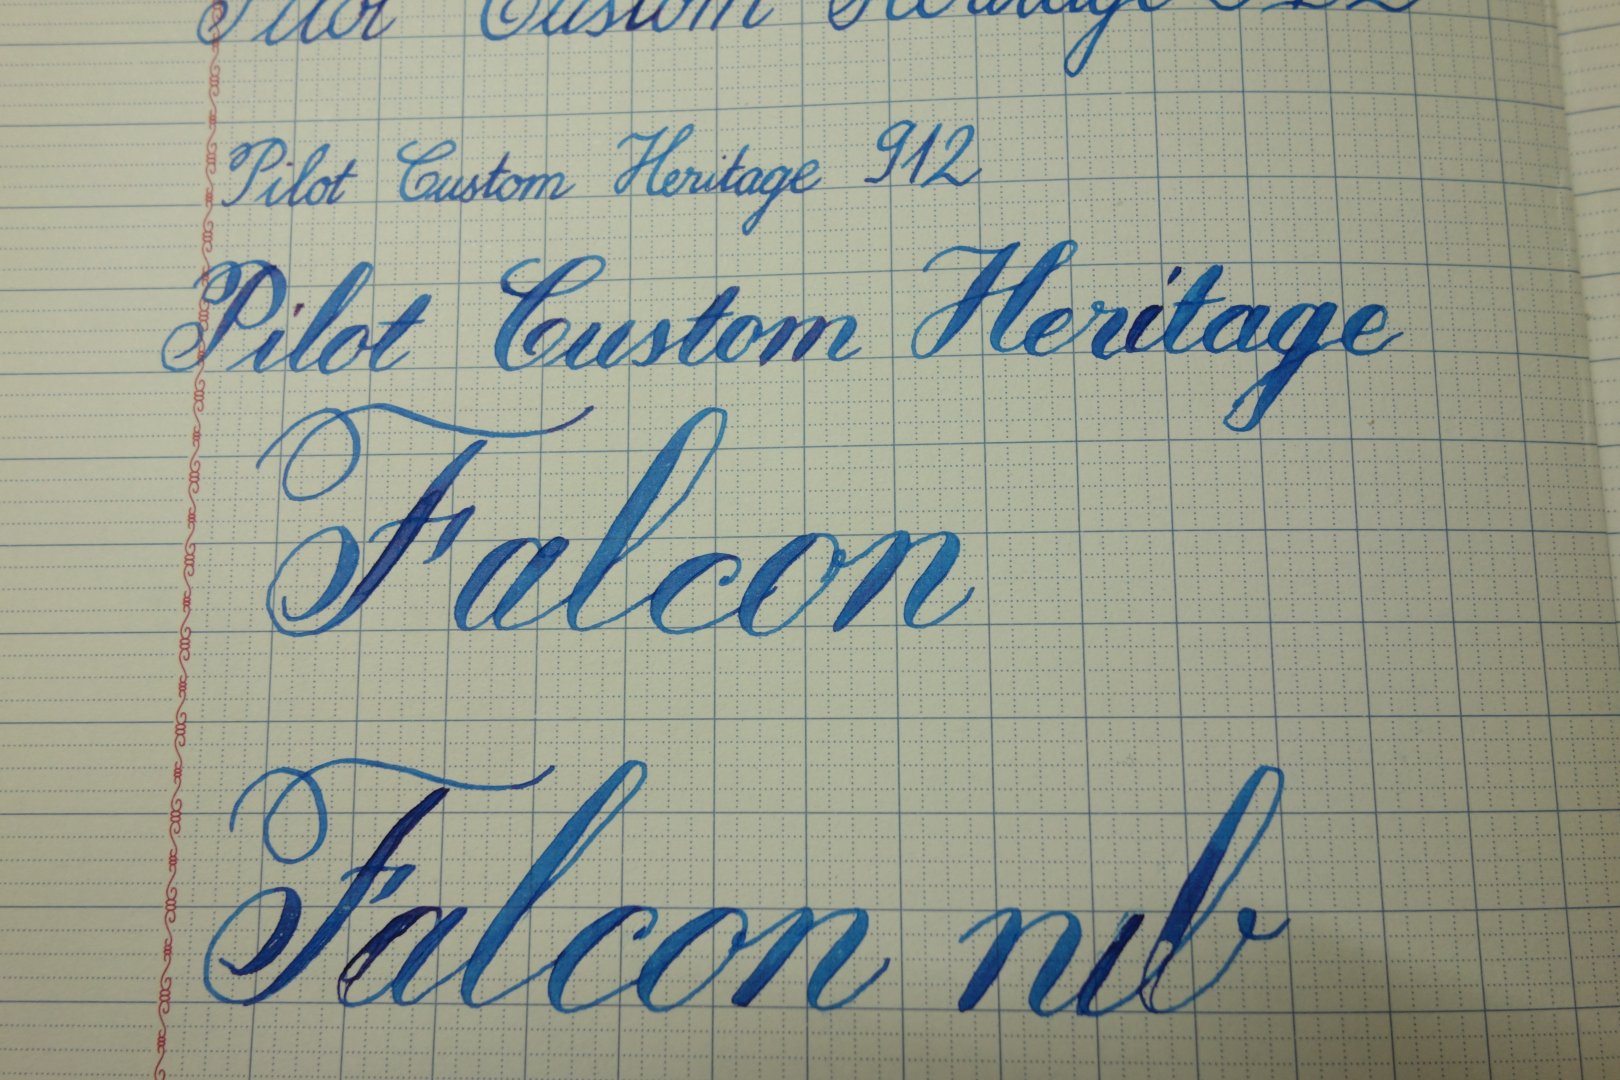 Pilot Custom Heritage
Pilot Custom Heritage 912
Pilot Custom Heritage
Falcon
Falcon nib